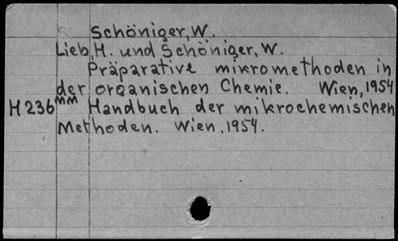 Schöniger, W.
Lieb, H. und Schöniger, W.
Präparative mikromethoden in
der organischen Chemie. Wien, 1954
H 236 mm Handbuch der mikrochemischen
Methoden. Wien, 1954.